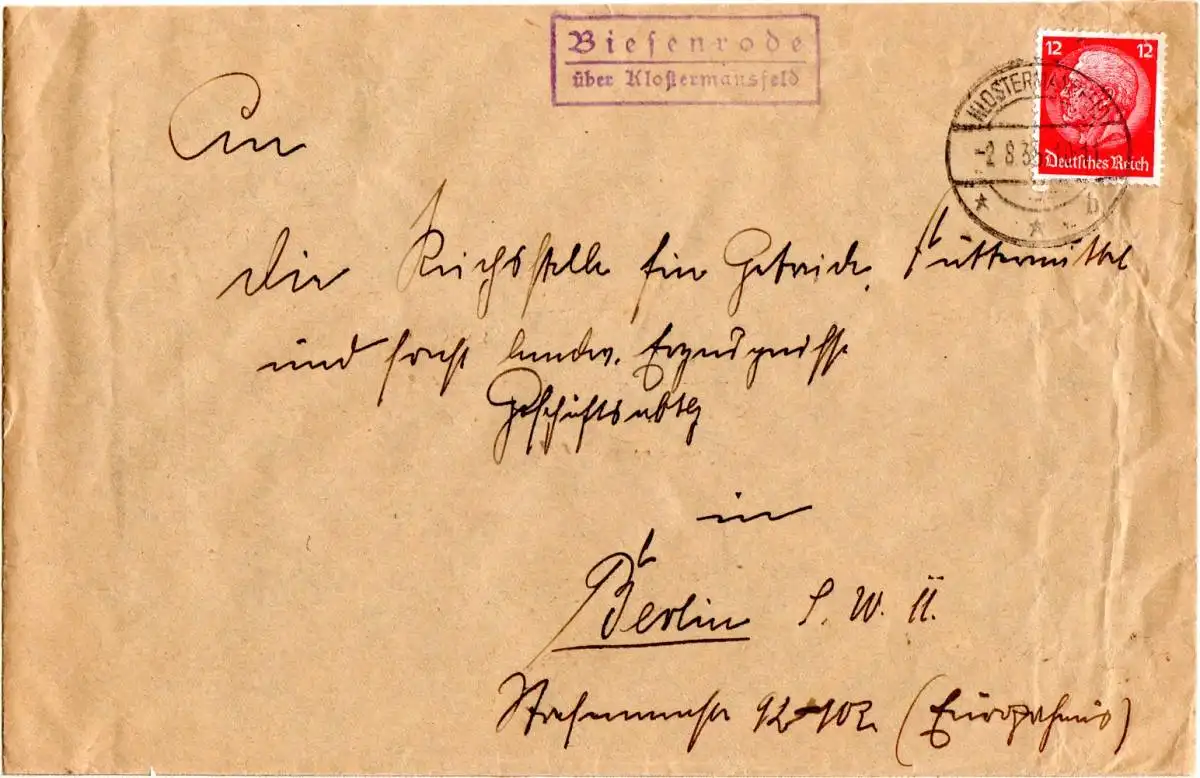 Biesenrode
über Klostermansfeld
12 12
KLOSTERMANSFELD
-2.8.38
b
Deutsches Reich
An
die Reichsstelle für Getreide, Futtermittel
und sonst. landw. Erzeugnisse
Geschäftsabtlg
in
Berlin S. W. 11.
Stresemannstr 92-102. (Europahaus)